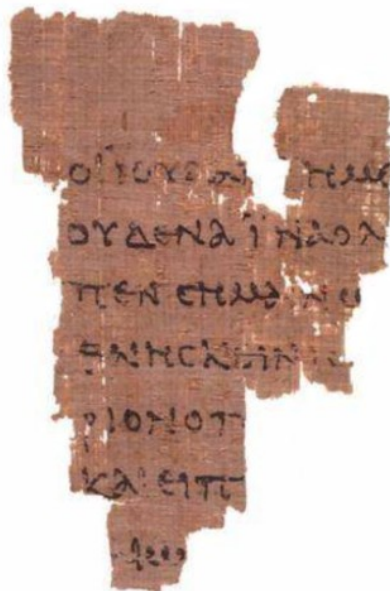 ΟΙ ΙΟΥΔΑΙ ΗΜ
ΟΥΔΕΝΑ ΪΝΑ Ο Λ
ΠΕΝ CΗΜΑΙΝΩ
ΘΝΗCΚΕΙΝ
ΡΙΟΝ Ο Π
ΚΑΙ ΕΙΠ